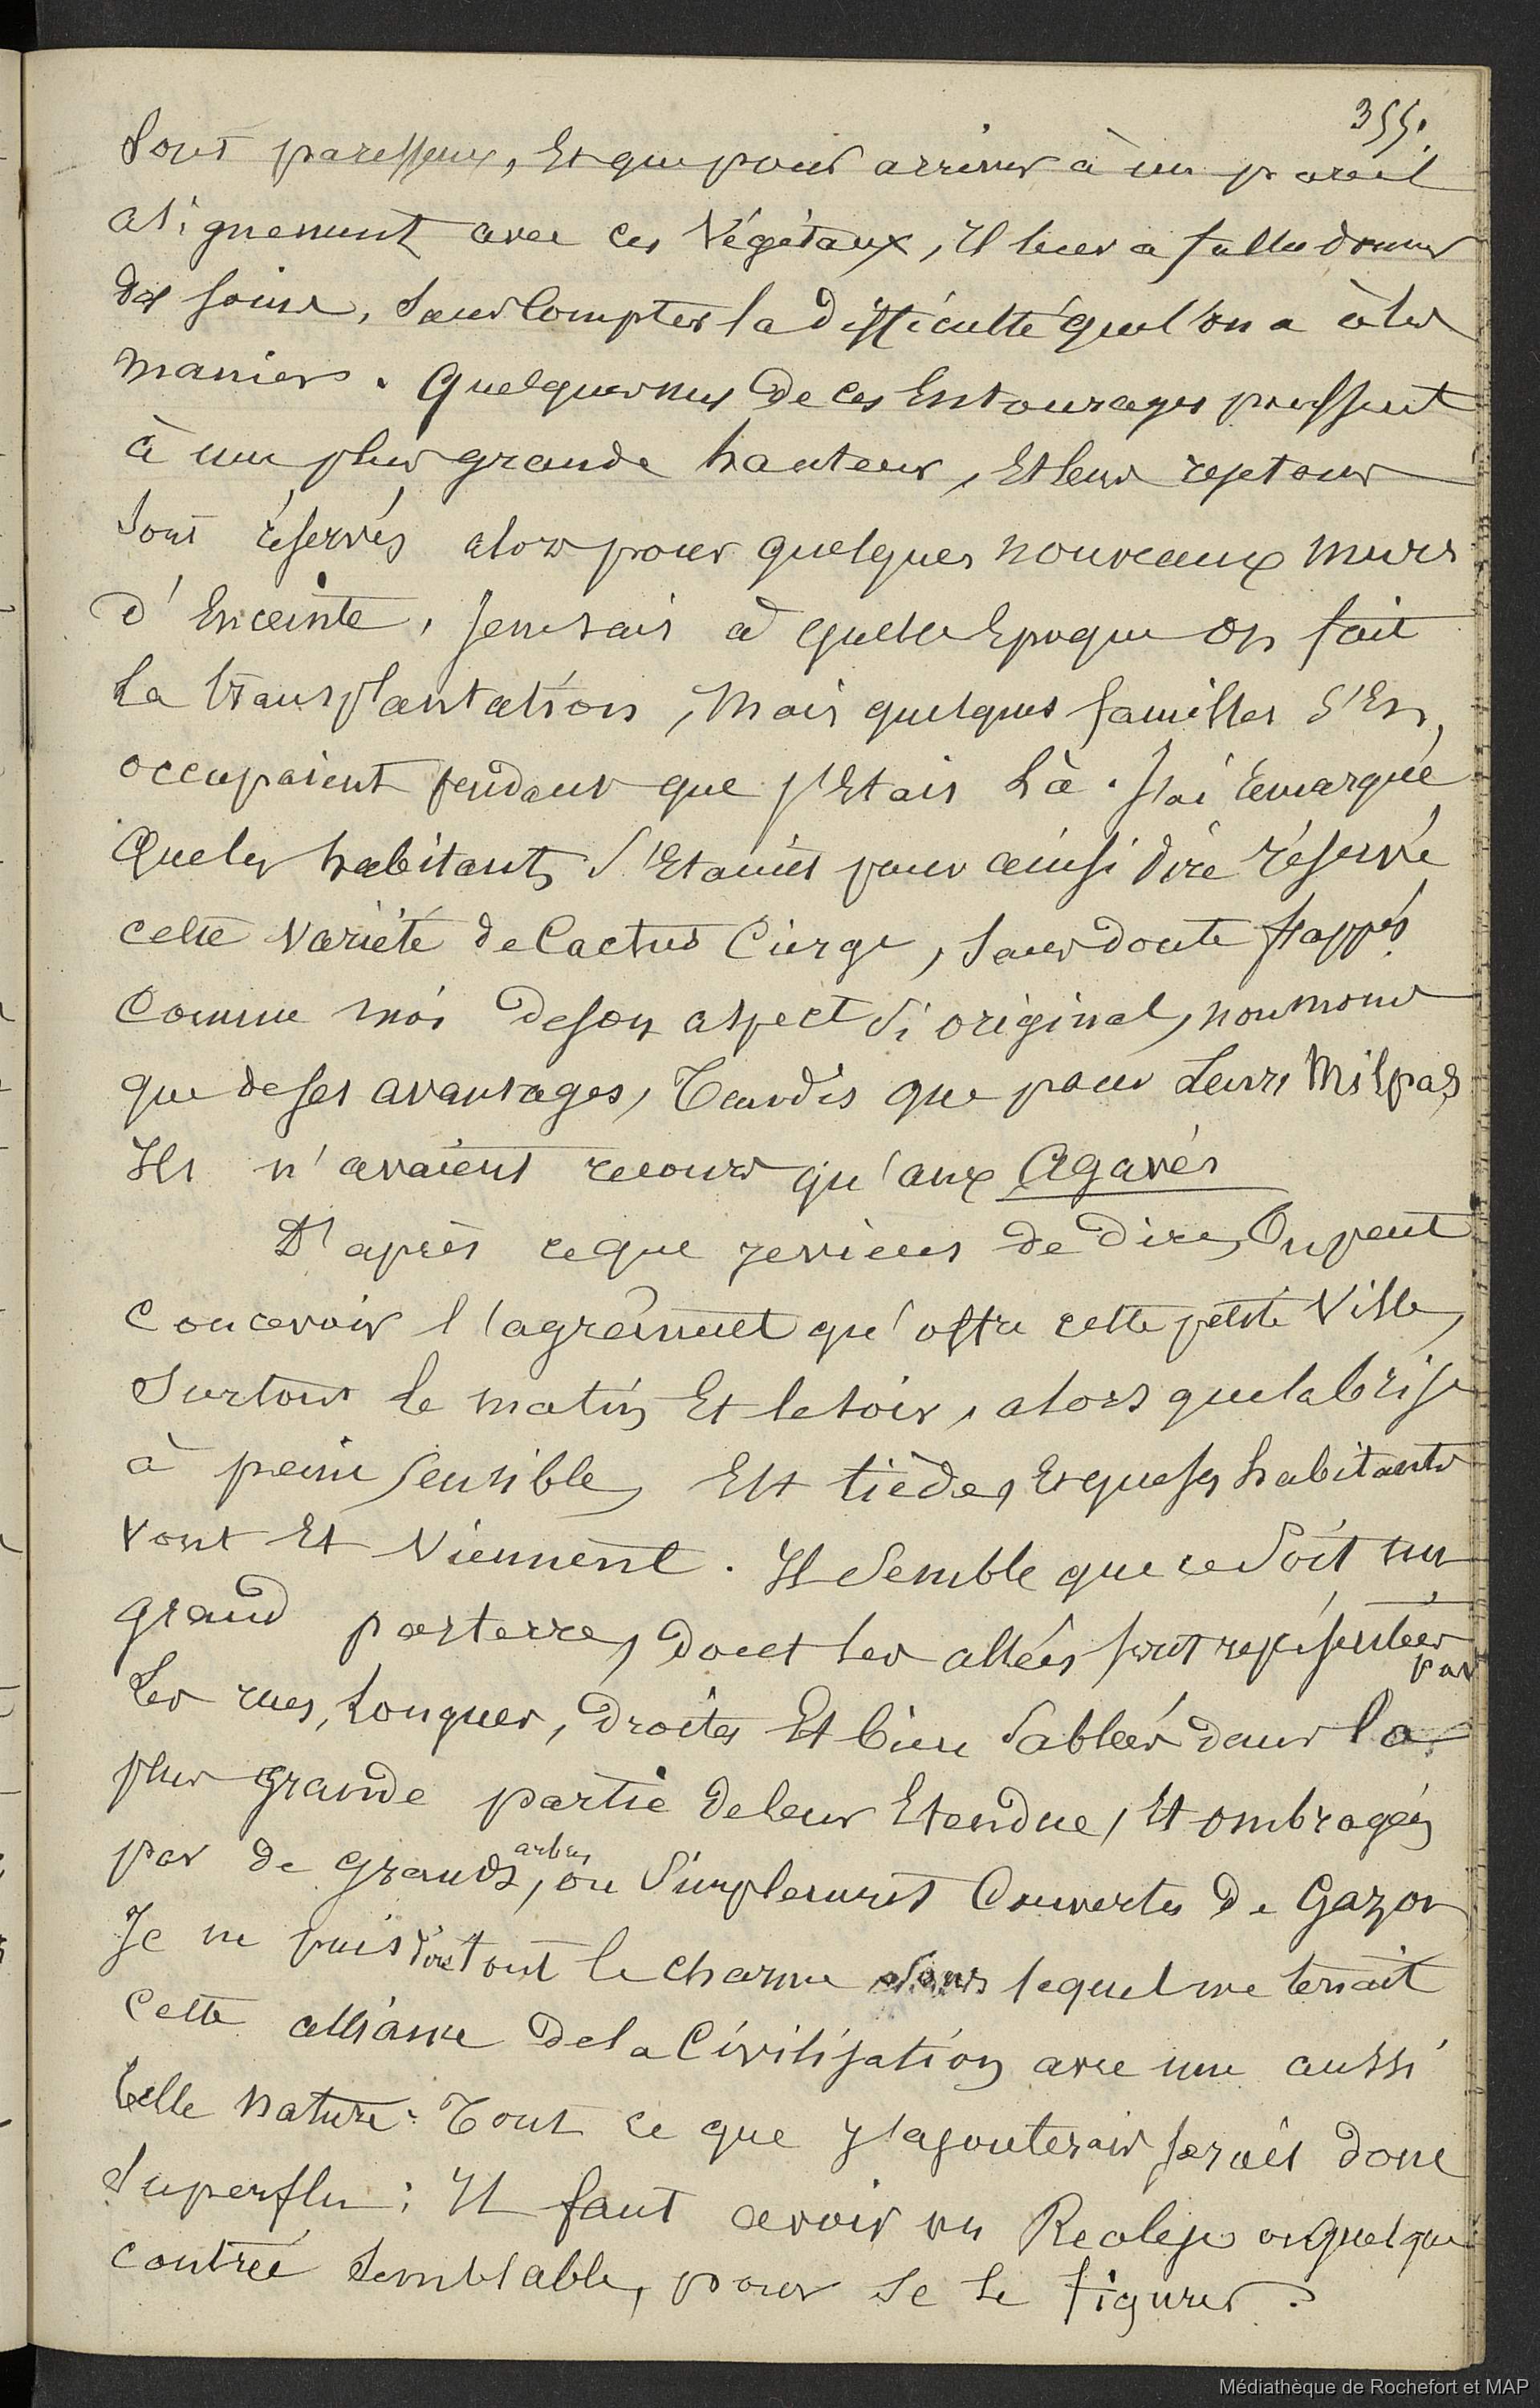 355.
Sont paresseux, Et que pour arriver à un pareil
alignement avec ces Végétaux, Il leur a fallu donner
des soins, Sans Compter la difficulté que l'on a à les
manier. Quelques uns de ces Entourages poussent
à une plus grande hauteur, Et leurs rejetons
Sont réservés alors pour quelques nouveaux murs
d'Enceinte, Je ne sais à quelle Epoque on fait
La transplantation, Mais quelques familles S'En,
occupaient pendant que j'Etais Là. J'ai remarqué
Que les habitants S'Etaient pour ainsi dire réservé
cette Variété de Cactus Cierge, Sans doute frappés
Comme moi de son aspect Si original, non moins
que de ses avantages, Tandis que pour Leurs Milpas
Ils n'avaient recours qu'aux Agavés
D'après ce que je viens de dire, On peut
Concevoir l'agrément qu'offre cette petite Ville,
Surtout le matin Et le soir, alors que la brise
à peine Sensible, Est tiède, Et que ses habitants
Vont Et Viennent. Il Semble que ce Soit un
grand parterre, dont les allées sont représentées
par
Les rues, Longues, droites Et bien Sablées dans la
plus grande partie de leur Etendue, Et ombragées
par de grands arbres, ou Simplement Couvertes de Gazon
Je ne puis dire tout le charme sous lequel me tenait
Cette alliance de la Civilisation avec une aussi
belle nature. Tout ce que j'ajouterais serait donc
Superflu; Il faut avoir vu Realejo ou quelque
contrée Semblable, pour se le figurer.
Médiathèque de Rochefort et MAP